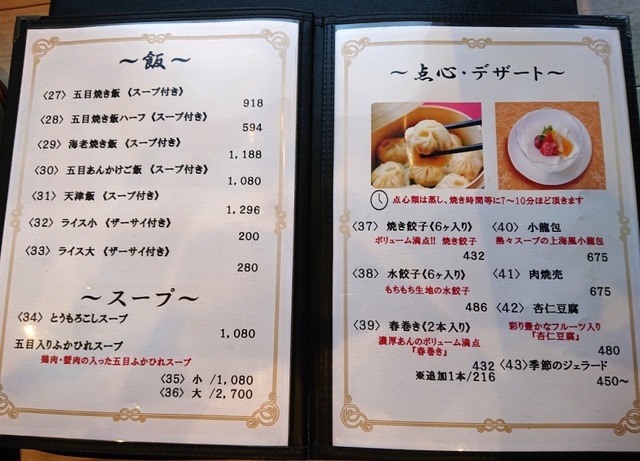 ～飯～
〈27〉 五目焼き飯 《スープ付き》
918
〈28〉 五目焼き飯ハーフ《スープ付き》
594
〈29〉 海老焼き飯 《スープ付き》
1,188
〈30〉 五目あんかけご飯 《スープ付き》
1,080
〈31〉 天津飯 《スープ付き》
1,296
〈32〉 ライス小 《ザーサイ付き》
200
〈33〉 ライス大 《ザーサイ付き》
280
～スープ～
〈34〉 とうもろこしスープ
1,080
五目入りふかひれスープ
鶏肉・蟹肉の入った五目ふかひれスープ
〈35〉 小 /1,080
〈36〉 大 /2,700
～点心・デザート～
点心類は蒸し、焼き時間等に7～10分ほど頂きます
〈37〉 焼き餃子《6ヶ入り》
ボリューム満点!! 焼き餃子
432
〈38〉 水餃子《6ヶ入り》
もちもち生地の水餃子
486
〈39〉 春巻き《2本入り》
濃厚あんのボリューム満点
『春巻き』
432
※追加1本/216
〈40〉 小龍包
熱々スープの上海風小龍包
675
〈41〉 肉焼売
675
〈42〉 杏仁豆腐
彩り豊かなフルーツ入り
『杏仁豆腐』
480
〈43〉季節のジェラード
450～